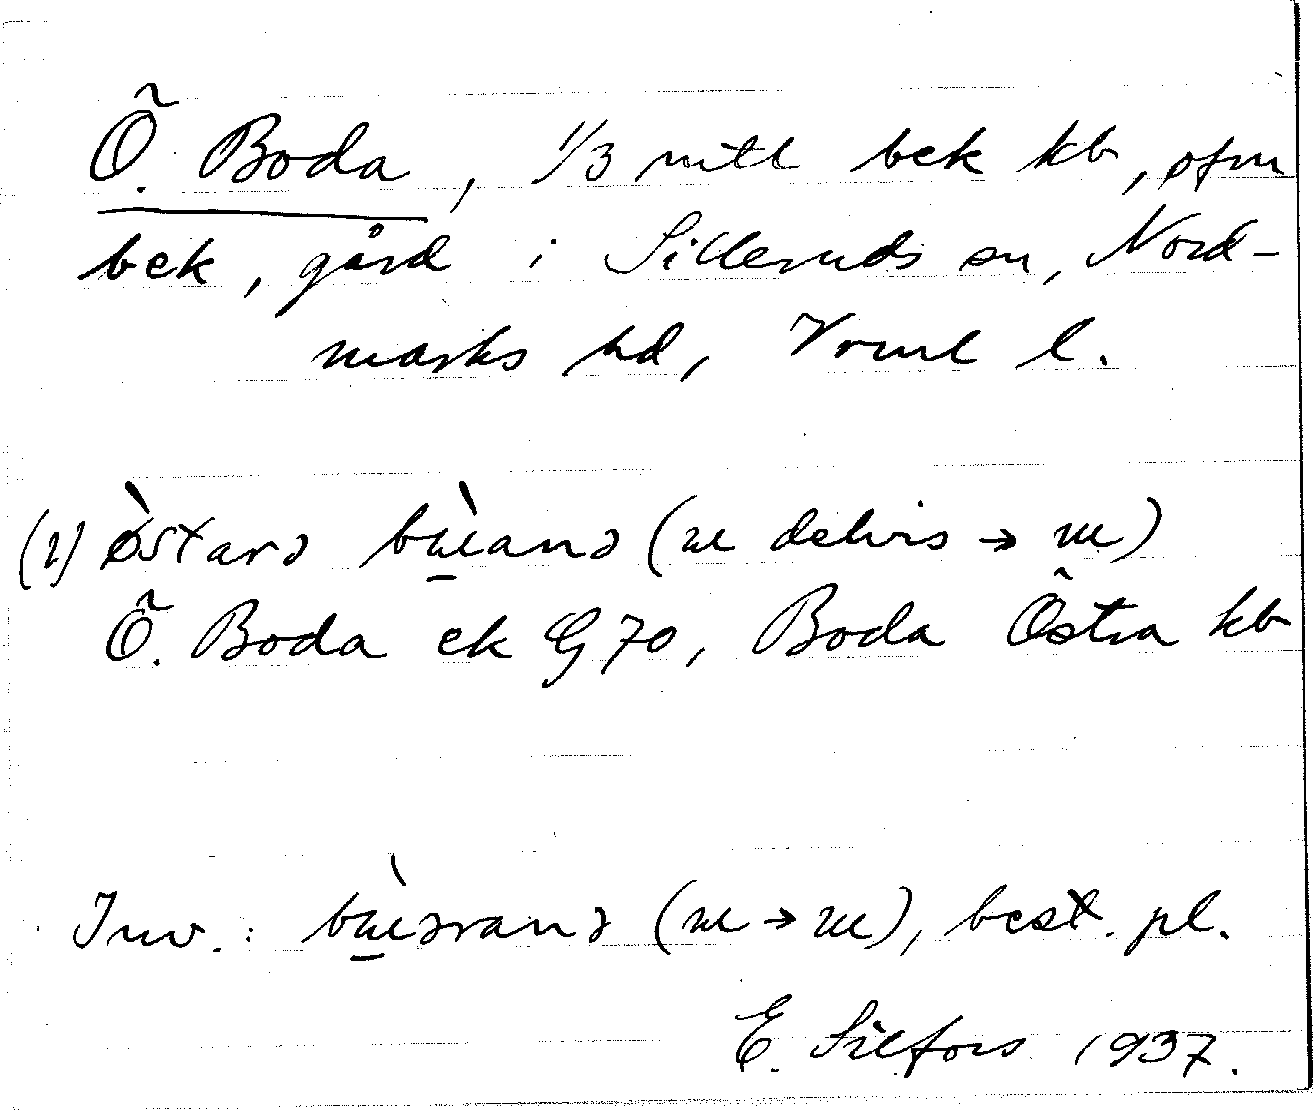 Ö. Boda, 1/3 mtl bek kb, ofm
bek, gård i Silleruds sn, Nord-
marks hd, Vrml l.
(2) østarə bɯ̀anə (ɯ delvis → ɯ)
Ö. Boda ek G 70, Boda Östra kb
Inv.: bɯ̀əranə (ɯ → ɯ), best. pl.
E. Silfors 1937.